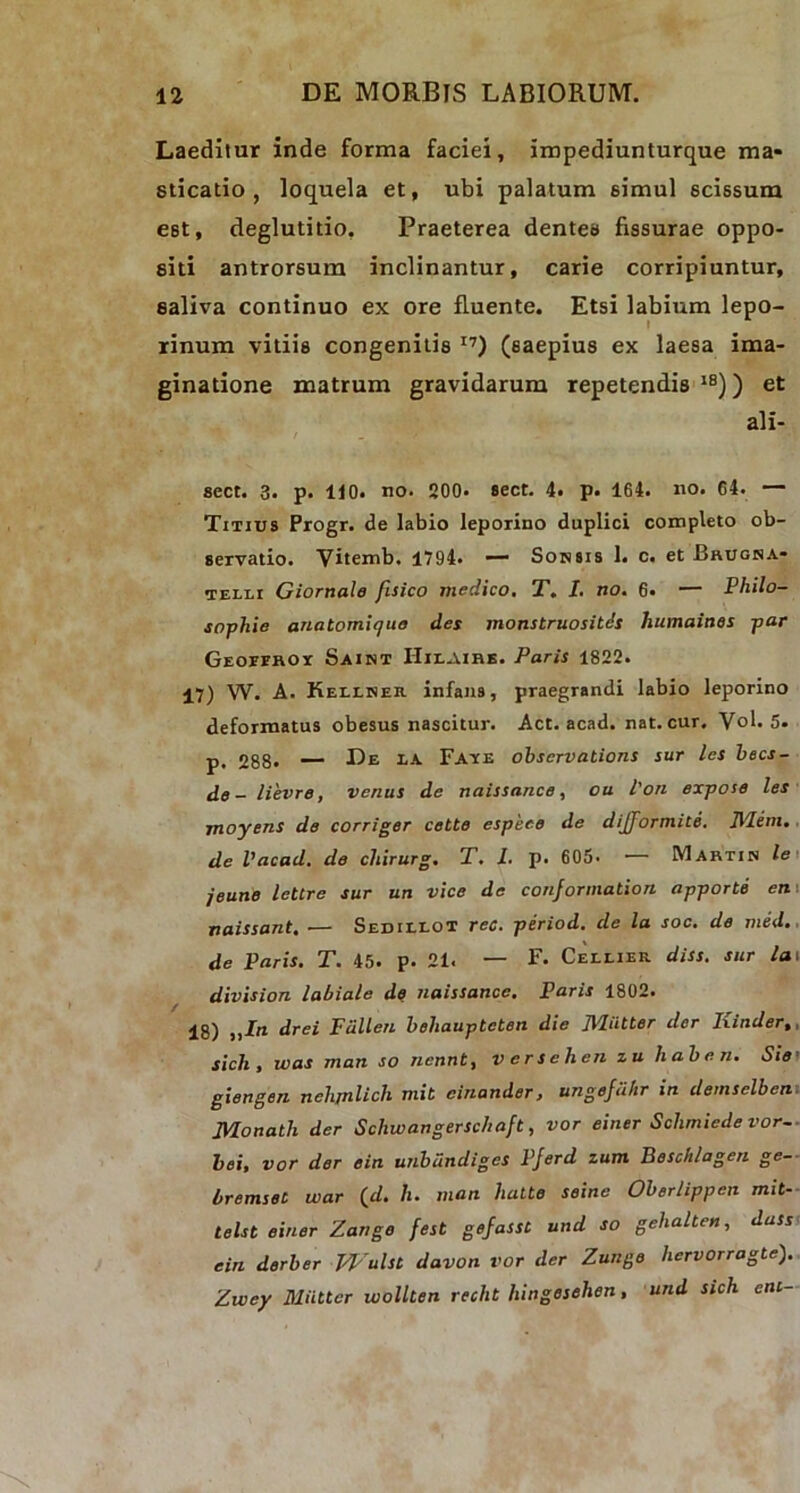 12 DE MORBIS LABIORUM.
Laeditur inde forma faciei, impediunturque ma-
sticatio, loquela et, ubi palatum simul scissum
est, deglutitio. Praeterea dentes fissurae oppo-
siti antrorsum inclinantur, carie corripiuntur,
saliva continuo ex ore fluente. Etsi labium lepo-
rinum vitiis congenitis 17) (saepius ex laesa ima-
ginatione matrum gravidarum repetendis 18)) et
ali-
sect. 3. p. 110. no. 200. sect. 4. p. 164. no. 64. —
Titius Progr. de labio leporino duplici completo ob-
servatio. Vitemb. 1794. — Sonsis l. c. et Brugna-
telli Giornale fisico medico. T. I. no. 6. — Philo-
sophie anatomique des monstruosités humaines par
Geoffroy Saint Hilaire. Paris 1822.
17) W. A. Kellner infans, praegrandi labio leporino
deformatus obesus nascitur. Act. acad. nat. cur. Vol. 5.
p. 288. — De la Faye observations sur les becs-
de-lièvre, venus de naissance, ou l'on expose les
moyens de corriger cette espèce de difformité. Mém.
de l'acad. de chirurg. T. I. p. 605. — Martin le
jeune lettre sur un vice de conformation apporté en
naissant. — Sedillot rec. périod. de la soc. de méd.
de Paris. T. 45. p. 21. — F. Cellier diss. sur la
division labiale de naissance. Paris 1802.
18) „In drei Fällen behaupteten die Mütter der Kinder,
sich, was man so nennt, versehen zu haben. Sie
giengen nehmlich mit einander, ungefähr in demselben
Monath der Schwangerschaft, vor einer Schmiede vor-
bei, vor der ein unbändiges Pferd zum Beschlagen ge-
bremset war (d. h. man hatte seine Oberlippen mit-
telst einer Zange fest gefasst und so gehalten, dass
ein derber Wulst davon vor der Zunge hervorragte).
Zwey Mütter wollten recht hingesehen, und sich ent-